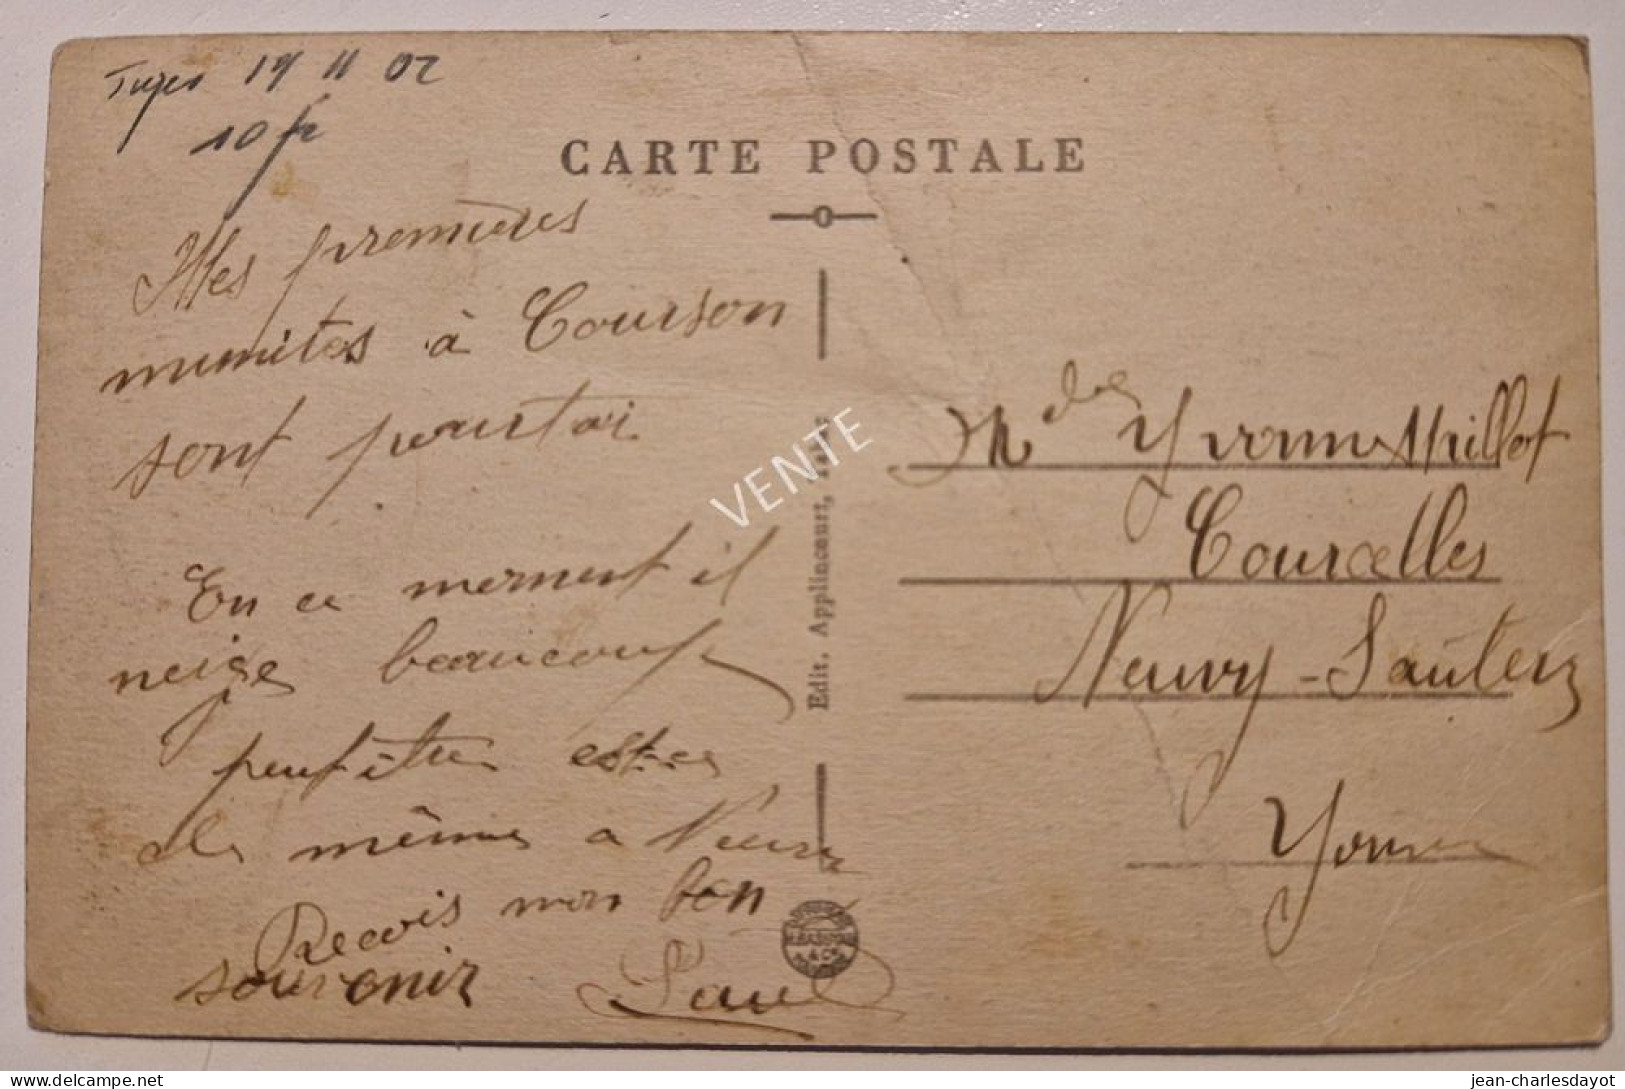 19 11 02
10 fr
CARTE POSTALE
Mes premières
minutes à Courson
sont pour toi
En ce moment il
neige beaucoup
peut être est ce
de même a Neuvy
Recois mon bon
souvenir Paul
Edit. Applincourt,
VENTE
Mdelle Yvonne Millot
Courcelles
Neuvy-Sautour
Yonne
delcampe.net
jean-charlesdayot